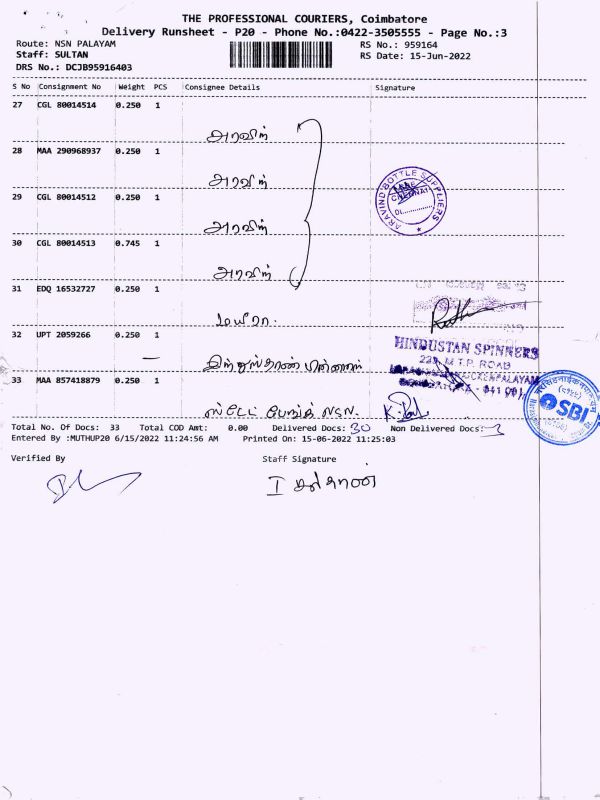 THE PROFESSIONAL COURIERS, Coimbatore
Delivery Runsheet - P20 - Phone No.:0422-3505555 - Page No.:3
Route: NSN PALAYAM RS No.: 959164
Staff: SULTAN RS Date: 15-Jun-2022
DRS No.: DCJB95916403
S No Consignment No Weight PCS Consignee Details Signature
27 CGL 80014514 0.250 1
அரவிந்
28 MAA 290968937 0.250 1
அரவிந்
29 CGL 80014512 0.250 1
ARAVIND BOTTLE SUPPLIERS
CHENNAI
அரவிந்
30 CGL 80014513 0.745 1
அரவிந்
31 EDQ 16532727 0.250 1
மயிரா.
32 UPT 2059266 0.250 1
HINDUSTAN SPINNERS
M.T.P. ROAD
இந்துஸ்தான்
33 MAA 857418879 0.250 1
SBI
NSN.
Total No. Of Docs: 33 Total COD Amt: 0.00 Delivered Docs: 30 Non Delivered Docs: 3
Entered By :MUTHUP20 6/15/2022 11:24:56 AM Printed On: 15-06-2022 11:25:03
Verified By Staff Signature